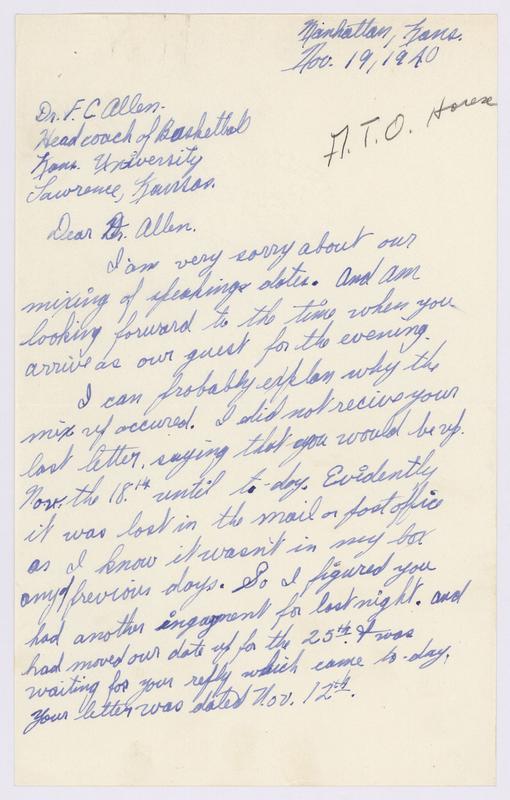 Manhattan, Kans.
Nov. 19, 1940
A.T.O. House
Dr. F. C. Allen.
Head coach of Basketball
Kans. University
Lawrence, Kansas.
Dear Dr. Allen.
I am very sorry about our
mixing of speakings dates. And am
looking forward to the time when you
arrive as our guest for the evening.
I can probably explan why the
mix up occured. I did not recive your
last letter, saying that you would be up.
Nov. the 18th until to-day. Evidently
it was lost in the mail or post office
as I know it wasn't in my box
any of previous days. So I figured you
had another engagment for last night. and
had moved our date up for the 25th. I was
waiting for your reply which came to-day.
Your letter was dated Nov. 12th.